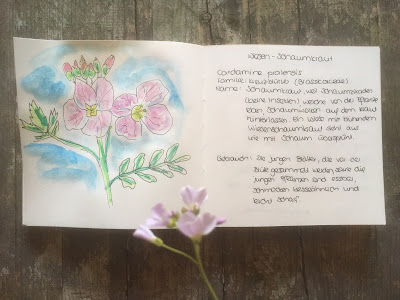 WIESEN-SCHAUMKRAUT
Cardamine pratensis
Familie: Kreuzblütler (Brassicaceae)
Name: Schaumkraut, weil Schaumzikaden
(kleine Insekten) welche von der Pflanze
klein Schaumwolken auf dem Kraut
hinterlassen. Ein Wiese mit blühendem
Wiesenschaumkraut sieht aus
wie mit Schaum übersprüht.
Gebrauch: Die jungen Blätter, die vor der
Blüte gesammelt werden, sowie die
jungen Pflanzen sind essbar,
schmecken kresseähnlich und
leicht scharf.